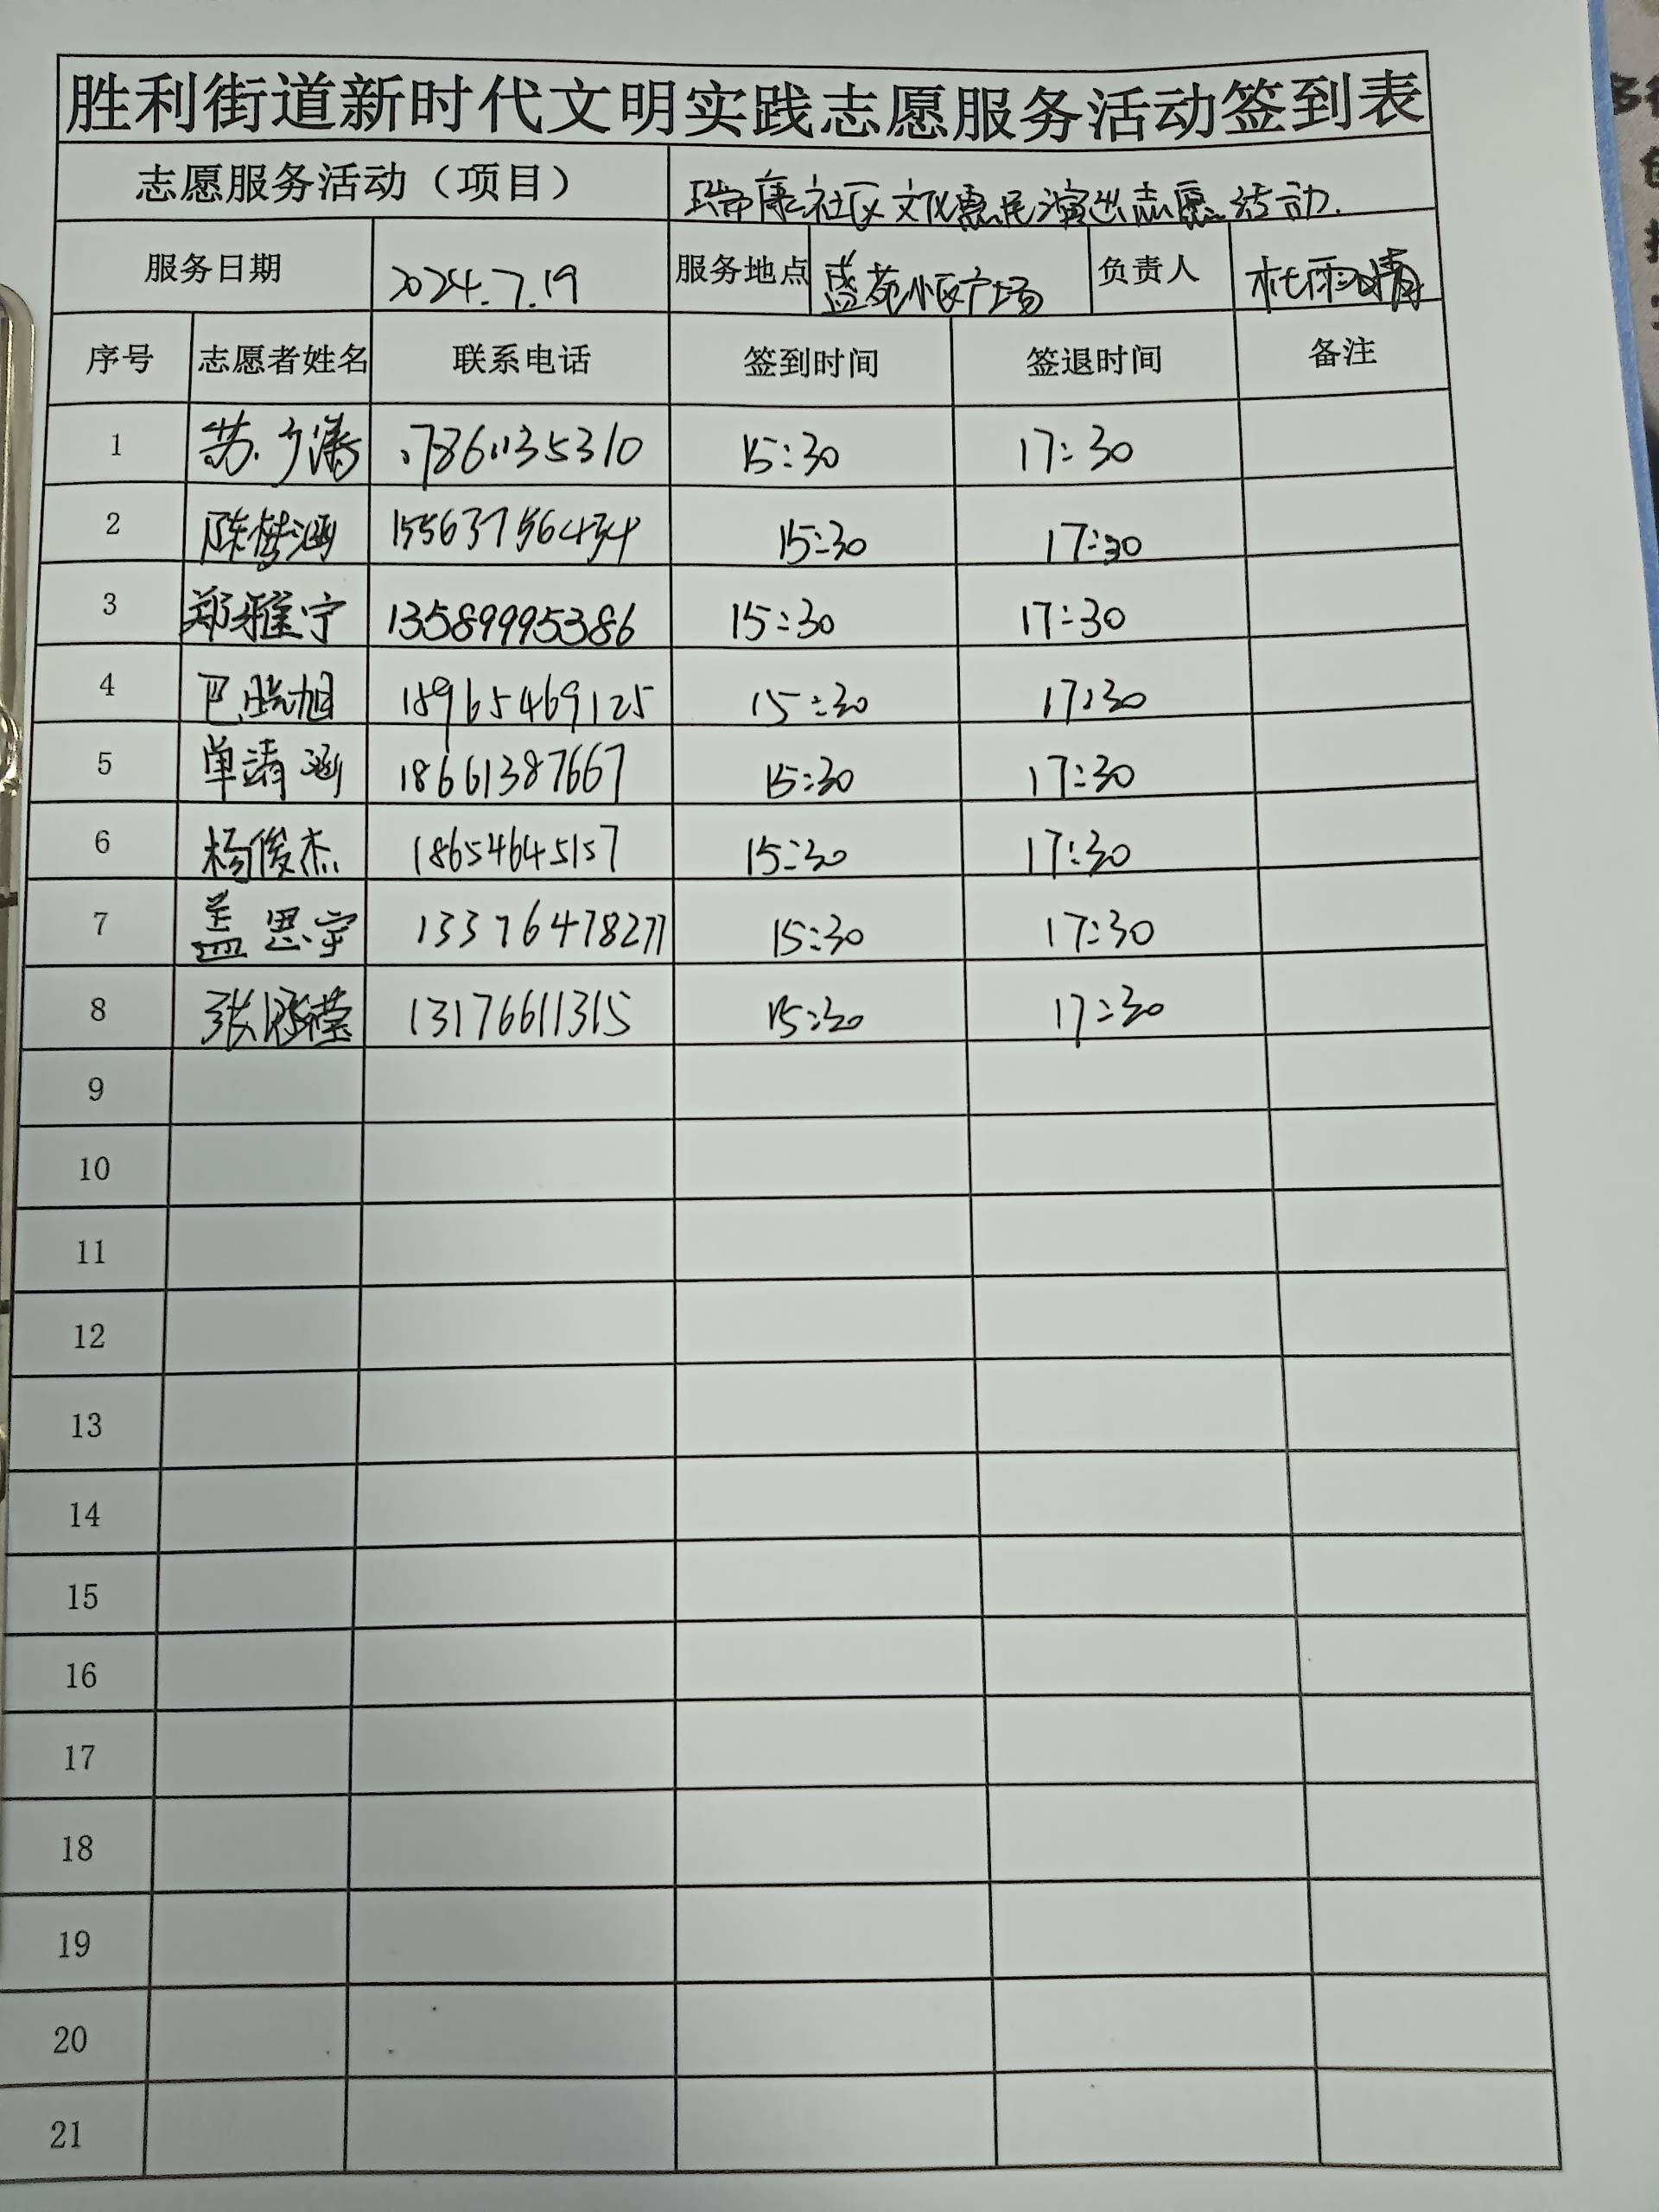 胜利街道新时代文明实践志愿服务活动签到表
志愿服务活动（项目） 瑞康社区文化惠民演出志愿活动.
服务日期 2024.7.19 服务地点 盛苑小区广场 负责人 杜雨晴
序号 志愿者姓名 联系电话 签到时间 签退时间 备注
1 苏少涛 17861135310 15:30 17:30
2 陈梦涵 15:30 17:30
3 郑雅宁 13589995386 15:30 17:30
4 巴晓旭 18965469125 15:30 17:30
5 单清涵 18661387667 15:30 17:30
6 杨俊杰 18654645157 15:30 17:30
7 盖思宇 13376478277 15:30 17:30
8 13176611315 15:30 17:30
9
10
11
12
13
14
15
16
17
18
19
20
21